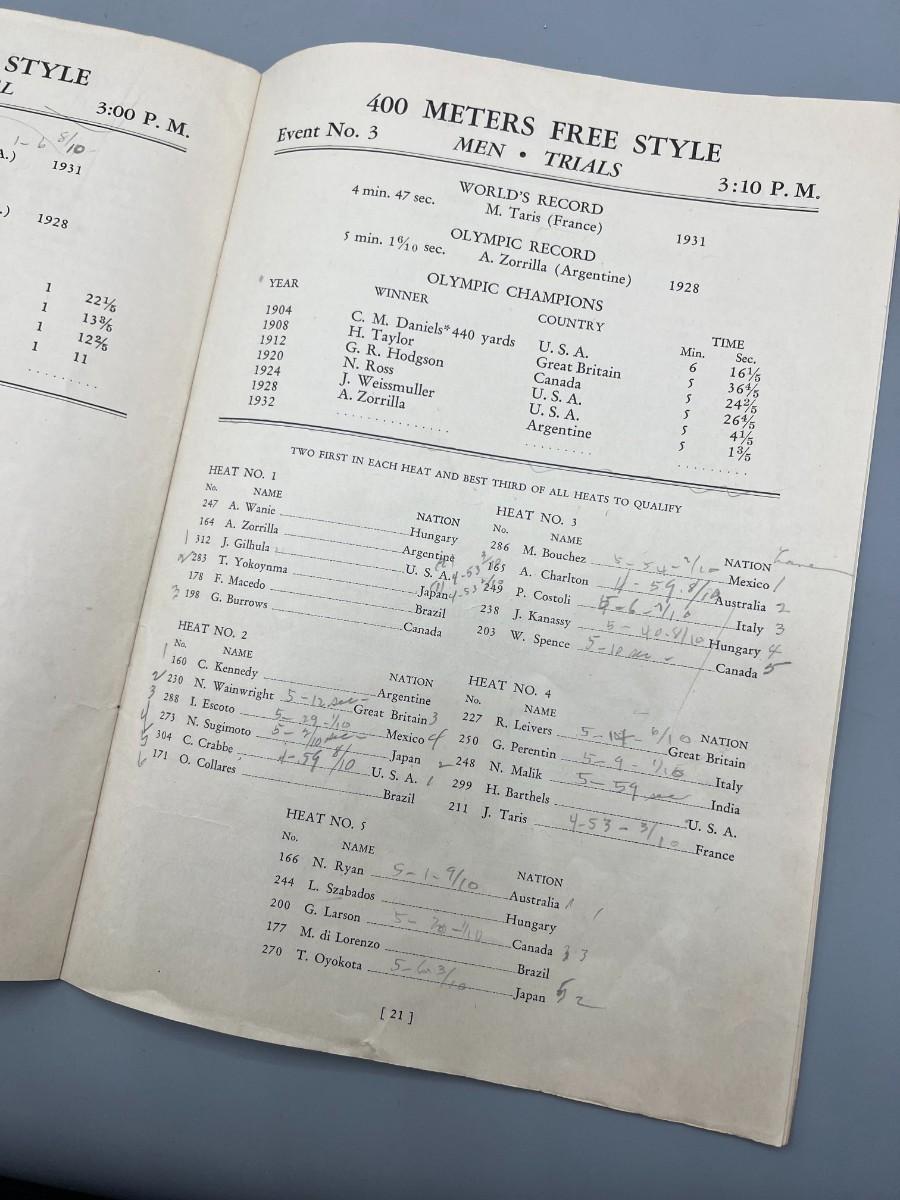 STYLE
3:00 P. M.
8/10
1931
1928
1 22⅕
1 13⅗
1 12⅖
1 11
400 METERS FREE STYLE
Event No. 3 MEN • TRIALS 3:10 P. M.
WORLD'S RECORD
4 min. 47 sec. M. Taris (France) 1931
OLYMPIC RECORD
5 min. 1 6/10 sec. A. Zorrilla (Argentine) 1928
OLYMPIC CHAMPIONS
YEAR WINNER COUNTRY TIME
Min. Sec.
1904 C. M. Daniels*440 yards U. S. A. 6 16⅕
1908 H. Taylor Great Britain 5 36⅘
1912 G. R. Hodgson Canada 5 24⅖
1920 N. Ross U. S. A. 5 26⅘
1924 J. Weissmuller U. S. A. 5 4⅕
1928 A. Zorrilla Argentine 5 1⅗
1932
TWO FIRST IN EACH HEAT AND BEST THIRD OF ALL HEATS TO QUALIFY
HEAT NO. 1
No. NAME NATION
247 A. Wanie Hungary
164 A. Zorrilla Argentine
1 312 J. Gilhula U. S. A. 4-53
283 T. Yokoynma Japan 4-53
178 F. Macedo Brazil
3 198 G. Burrows Canada
HEAT NO. 2
No. NAME NATION
1 160 C. Kennedy Argentine
2 230 N. Wainwright 5-12 sec Great Britain 3
3 288 I. Escoto 5-29-1/10 Mexico 4
4 273 N. Sugimoto 5- /10 sec Japan 2
5 304 C. Crabbe 4-59 8/10 U. S. A. 1
6 171 O. Collares Brazil
HEAT NO. 3
No. NAME NATION
286 M. Bouchez 5-54- /10 Mexico 1
165 A. Charlton 4-59.8/10 Australia 2
249 P. Costoli 5-6 /10 Italy 3
238 J. Kanassy 5-40.8/10 Hungary 4
203 W. Spence 5-10 sec Canada 5
HEAT NO. 4
No. NAME NATION
227 R. Leivers 5-14- 6/10 Great Britain
250 G. Perentin 5-9- 1/10 Italy
248 N. Malik 5-59 sec India
299 H. Barthels U. S. A.
211 J. Taris 4-53-3/10 France
HEAT NO. 5
No. NAME NATION
166 N. Ryan 5-1-9/10 Australia 1
244 L. Szabados Hungary
200 G. Larson 5-20-1/10 Canada 3 3
177 M. di Lorenzo Brazil
270 T. Oyokota 5-6.3/10 Japan 5 2
[ 21 ]